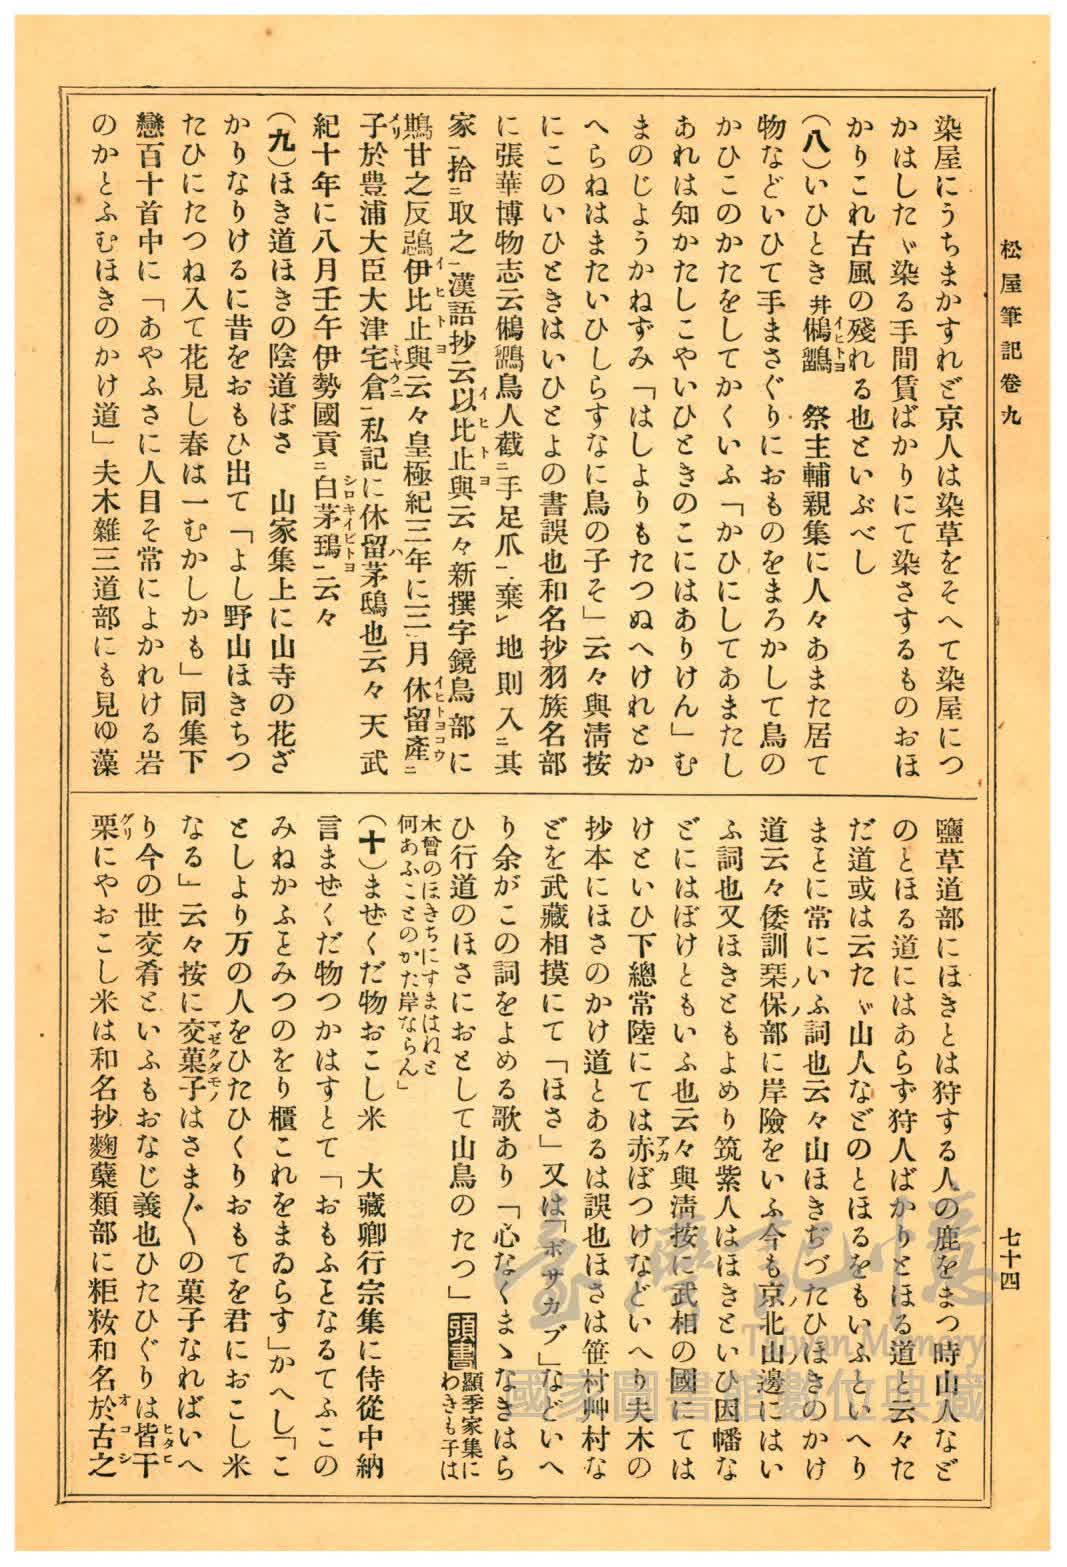 松屋筆記卷九
七十四
染屋にうちまかすれど京人は染草をそへて染屋につ
かはしたゞ染る手間賃ばかりにて染さするものおほ
かりこれ古風の殘れる也といぶべし
(八)いひとき 幷鵂鶹イヒトヨ 祭主輔親集に人々あまた居て
物などいひて手まさぐりにおものをまろかして鳥の
かひこのかたをしてかくいふ「かひにしてあまたし
あれは知かたしこやいひときのこにはありけん」む
まのじようかねずみ「はしよりもたつぬへけれとか
へらねはまたいひしらすなに鳥の子そ」云々與淸按
にこのいひときはいひとよの書誤也和名抄羽族名部
に張華博物志云鵂鶹鳥人截ニ手足爪一棄レ地則入ニ其
家一拾ニ取之一漢語抄云以比止與イヒトヨ云々新撰字鏡鳥部に
鵙甘之反鵄伊比止與イヒトヨ云々皇極紀三年に三月休留イヒトヨ產コウニ
メリ子於豊浦大臣大津宅倉ミヤケニ一私記に休留ハ茅鴟也云々天武
紀十年に八月壬午伊勢國貢ニ白茅鵄シロキイヒトヨ一云々
(九)ほき道ほきの陰道ぼさ 山家集上に山寺の花ざ
かりなりけるに昔をおもひ出て「よし野山ほきちつ
たひにたつね入て花見し春は一むかしかも」同集下
戀百十首中に「あやふさに人目そ常によかれける岩
のかとふむほきのかけ道」夫木雜三道部にも見ゆ藻
鹽草道部にほきとは狩する人の鹿をまつ時山人など
のとほる道にはあらず狩人ばかりとほる道と云々た
だ道或は云たゞ山人などのとほるをもいふといへり
まとに常にいふ詞也云々山ほきちづたひほきのかけ
道云々倭訓栞保ノ部ノに岸險をいふ今も京ノ北山ノ邊にはい
ふ詞也又ほきともよめり筑紫人はほきといひ因幡な
どにはぼけともいふ也云々與淸按に武相の國にては
けといひ下總常陸にては赤アカぼつけなどいへり夫木の
抄本にほさのかけ道とあるは誤也ほさは笹村艸村な
どを武藏相摸にて「ほさ」又は「ボサカブ」などいへ
り余がこの詞をよめる歌あり「心なくまゝなきはら
ひ行道のほさにおとして山鳥のたつ」頭書顯季家集に
わきも子は
木曾のほきちにすまはねと
何あふことのかた岸ならん」
(十)まぜくだ物おこし米 大藏卿行宗集に侍從中納
言まぜくだ物つかはすとて「おもふとなるてふこの
みねかふとみつのをり櫃これをまゐらす」かへし「こ
としより万の人をひたひくりおもてを君におこし米
なる」云々按に交菓子マゼクダモノはさま〴〵の菓子なればいへ
り今の世交肴といふもおなじ義也ひたひぐりは皆干ヒタヒ
栗グリにやおこし米は和名抄麴糵類部に粔籹和名於古オコシ之
臺灣記憶
Taiwan Memory
國家圖書館數位典藏